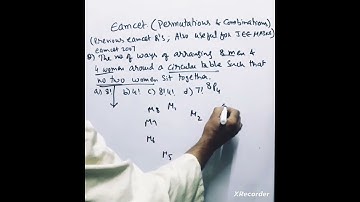 Eamcet (Permutations & Combinations)
(Previous eamcet Q's, Also useful for JEE MAINS)
Eamcet 2007
Q) The no of ways of arranging 8 men &
4 women around a circular table such that
no two women sit together.
a) 8! b) 4! c) 8! 4! d) 7! 8P4
M8 M1
M2
M7
M6
M5
XRecorder